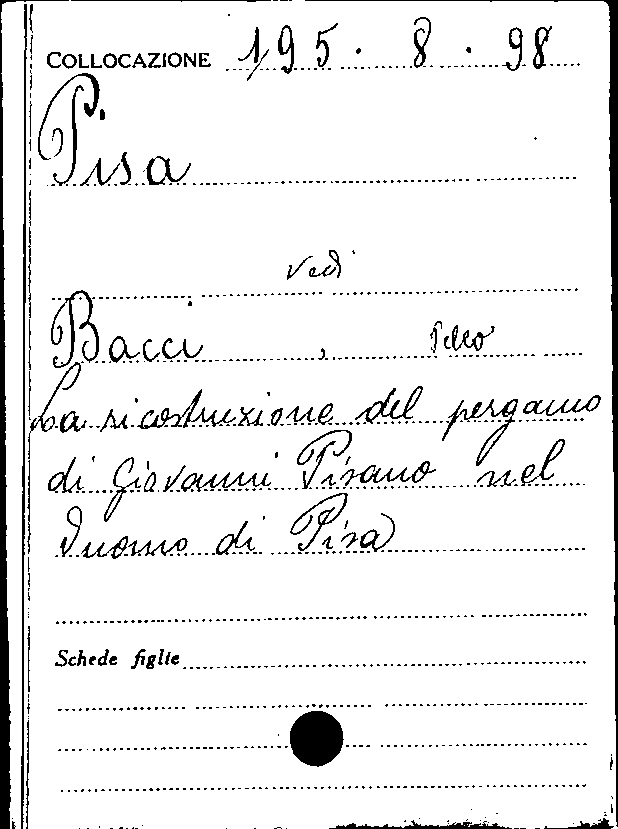 COLLOCAZIONE 195. 8. 98
Pisa
vedi
Bacci, Peleo
La ricostruzione del pergamo
di Giovanni Pisano nel
Duomo di Pisa
Schede figlie